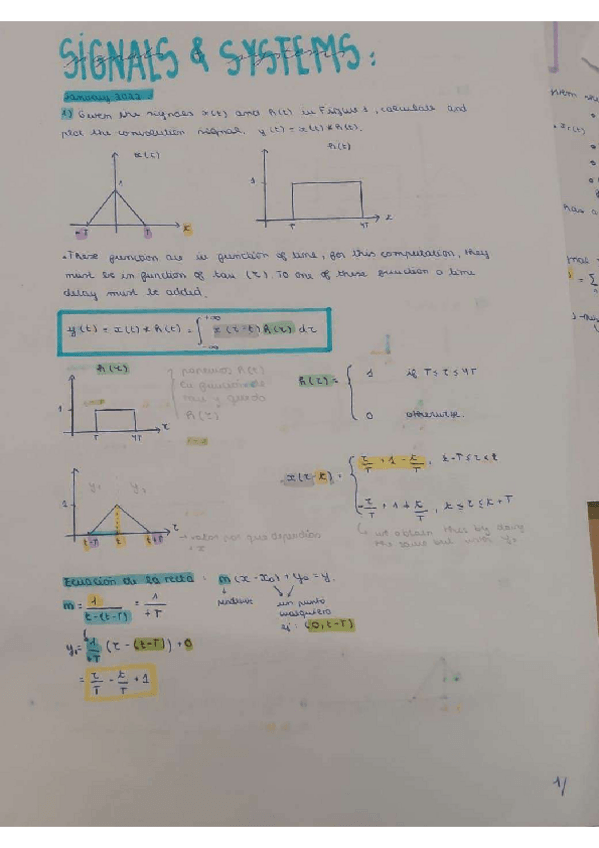 SIGNALS & SYSTEMS:
January 2022.
1) Given the signals x(t) and h(t) in Figure 1, calculate and
plot the convolution signal. y(t) = x(t) * h(t).
x(t)
h(t)
1
1
-T
T
t
T
4T
t
• These function are in function of time, for this computation, they
must be in function of tau (τ). To one of these function a time
delay must be added.
y(t) = x(t) * h(t) = ∫ x(τ-t) h(τ) dτ
+∞
-∞
h(τ)
ponemos h(t)
en función de
tau y queda
h(τ)
1
T
4T
τ
h(τ) =
1 if T ≤ τ ≤ 4T
0 otherwise.
y₁
y₂
t-T
t
t+T
τ
→ valor por que dependían
x(τ-t) =
τ/T + 1 - t/T , t-T ≤ τ < t
-τ/T + 1 + t/T , t ≤ τ ≤ t+T
we obtain this by doing
the same but with y₂
Ecuación de la recta : m(x - x₀) + y₀ = y.
m = 1/(t-(t-T)) = 1/+T
pendiente
un punto
cualquiera
ej: (0, t-T)
y₁ = 1/+T (τ - (t-T)) + 0
= τ/T - t/T + 1
1/